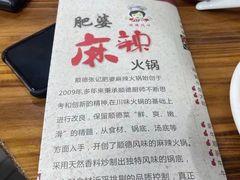 肥婆
麻辣
火锅
顺德张记肥婆麻辣火锅始创于
2009年,多年来秉承顺德厨师不断思
考和创新的精神,在川味火锅的基础上
进行改良,保留顺德菜“鲜、爽、嫩、
滑”的精髓,从食材、锅底、汤底等
方面入手,开创了风味的麻辣火锅。
采用天然香料炒制出独特风味的锅底,
的品质控制,真正